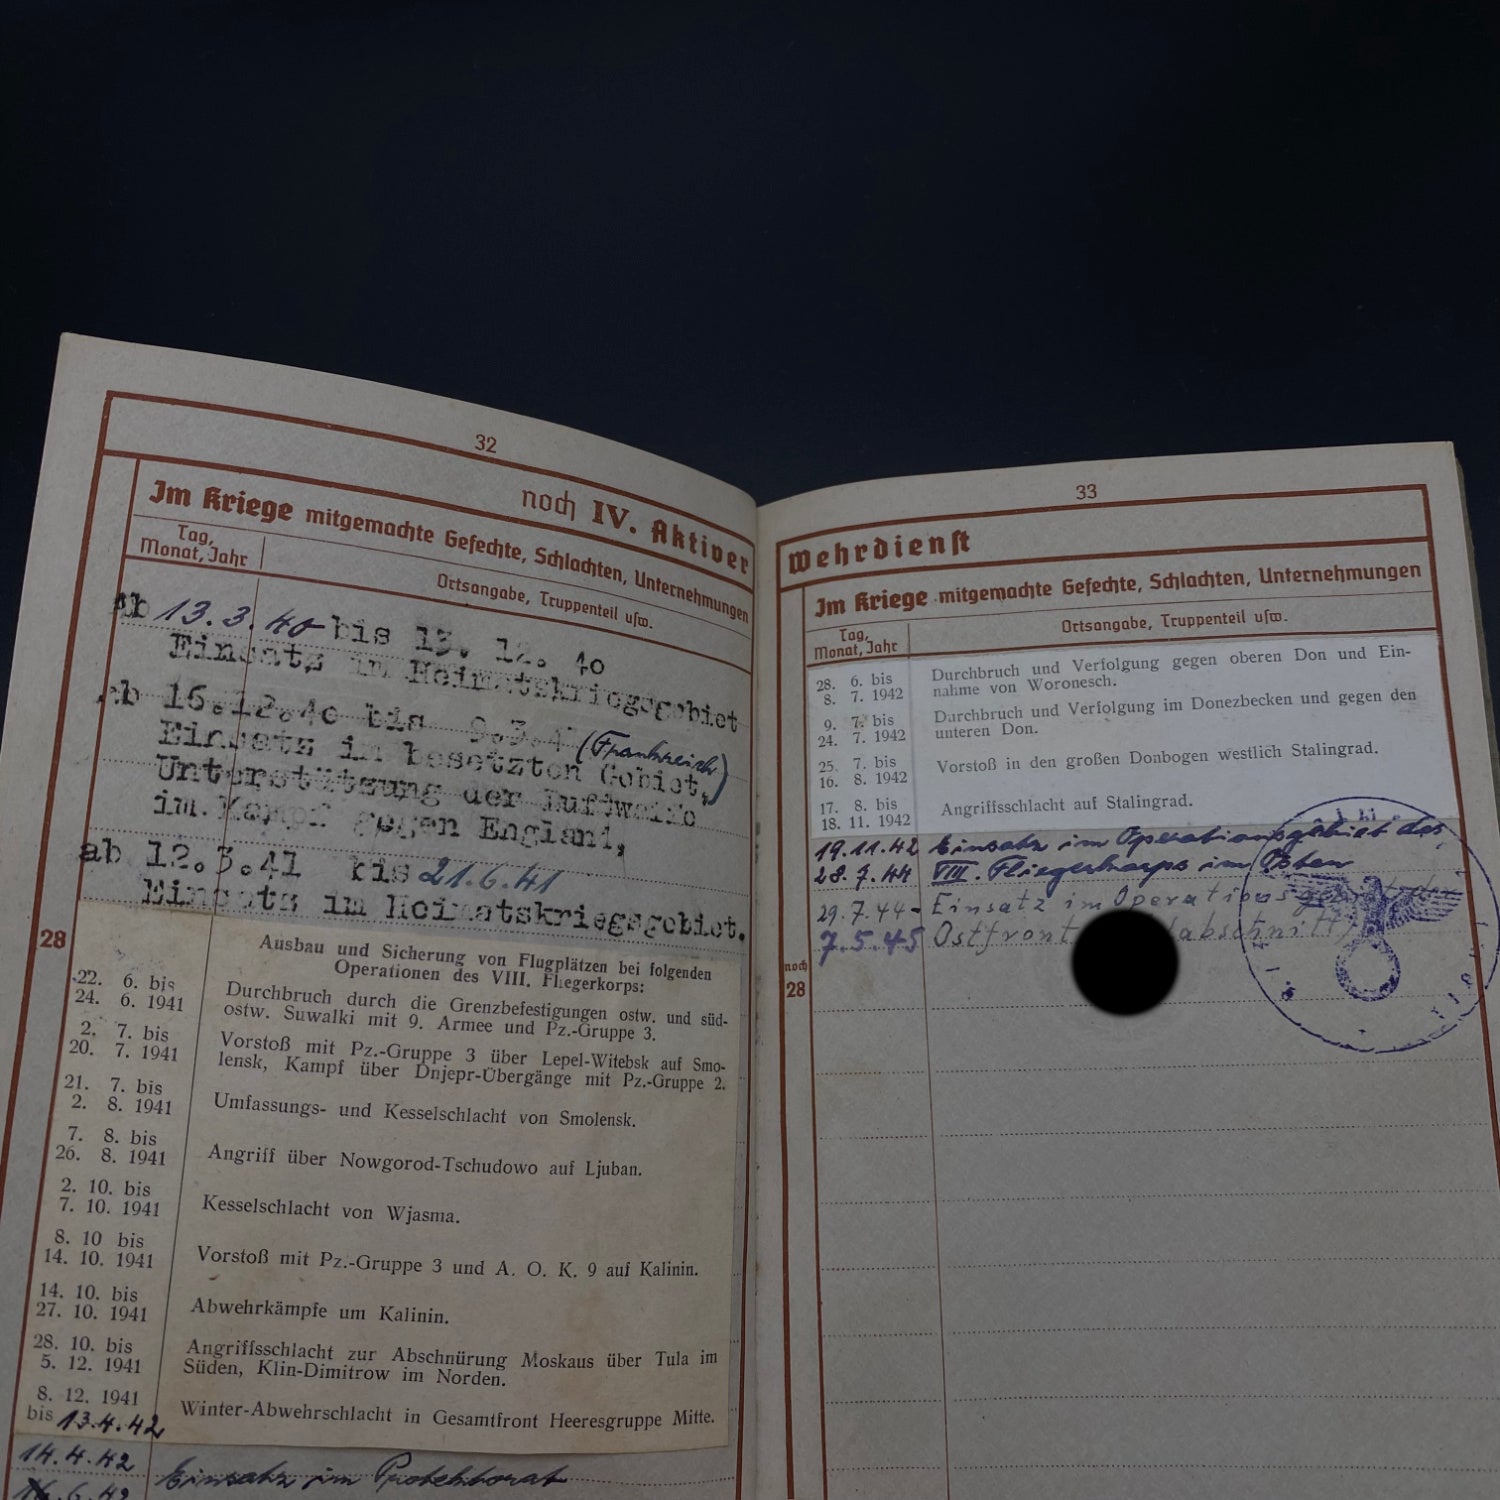 32
noch IV. Aktiver
Im Kriege mitgemachte Gefechte, Schlachten, Unternehmungen
Tag,
Monat, Jahr
Ortsangabe, Truppenteil usw.
Ab 13.3.40 bis 13. 12. 40
Einsatz im Heimatskriegsgebiet
Ab 16.12.40 bis 9.3.41 (Frankreich)
Einsatz im besetzten Gebiet,
Unterstützung der Luftwaffe
im Kampf gegen England,
ab 12.3.41 bis 21.6.41
Einsatz im Heimatskriegsgebiet.
28
Ausbau und Sicherung von Flugplätzen bei folgenden
Operationen des VIII. Fliegerkorps:
22. 6. bis
24. 6. 1941
Durchbruch durch die Grenzbefestigungen ostw. und süd-
ostw. Suwalki mit 9. Armee und Pz.-Gruppe 3.
2. 7. bis
20. 7. 1941
Vorstoß mit Pz.-Gruppe 3 über Lepel-Witebsk auf Smo-
lensk, Kampf über Dnjepr-Übergänge mit Pz.-Gruppe 2.
21. 7. bis
2. 8. 1941
Umfassungs- und Kesselschlacht von Smolensk.
7. 8. bis
26. 8. 1941
Angriff über Nowgorod-Tschudowo auf Ljuban.
2. 10. bis
7. 10. 1941
Kesselschlacht von Wjasma.
8. 10 bis
14. 10. 1941
Vorstoß mit Pz.-Gruppe 3 und A. O. K. 9 auf Kalinin.
14. 10. bis
27. 10. 1941
Abwehrkämpfe um Kalinin.
28. 10. bis
5. 12. 1941
Angriffsschlacht zur Abschnürung Moskaus über Tula im
Süden, Klin-Dimitrow im Norden.
8. 12. 1941
bis 13.4.42
Winter-Abwehrschlacht in Gesamtfront Heeresgruppe Mitte.
14.4.42
Einsatz im Protektorat
33
Wehrdienst
Im Kriege mitgemachte Gefechte, Schlachten, Unternehmungen
Tag,
Monat, Jahr
Ortsangabe, Truppenteil usw.
28. 6. bis
8. 7. 1942
Durchbruch und Verfolgung gegen oberen Don und Ein-
nahme von Woronesch.
9. 7. bis
24. 7. 1942
Durchbruch und Verfolgung im Donezbecken und gegen den
unteren Don.
25. 7. bis
16. 8. 1942
Vorstoß in den großen Donbogen westlich Stalingrad.
17. 8. bis
18. 11. 1942
Angriffsschlacht auf Stalingrad.
19.11.42 Einsatz im Operationsgebiet des
28.7.44 VIII. Fliegerkorps im Osten
29.7.44- Einsatz im
7.5.45 Ostfront
noch
28